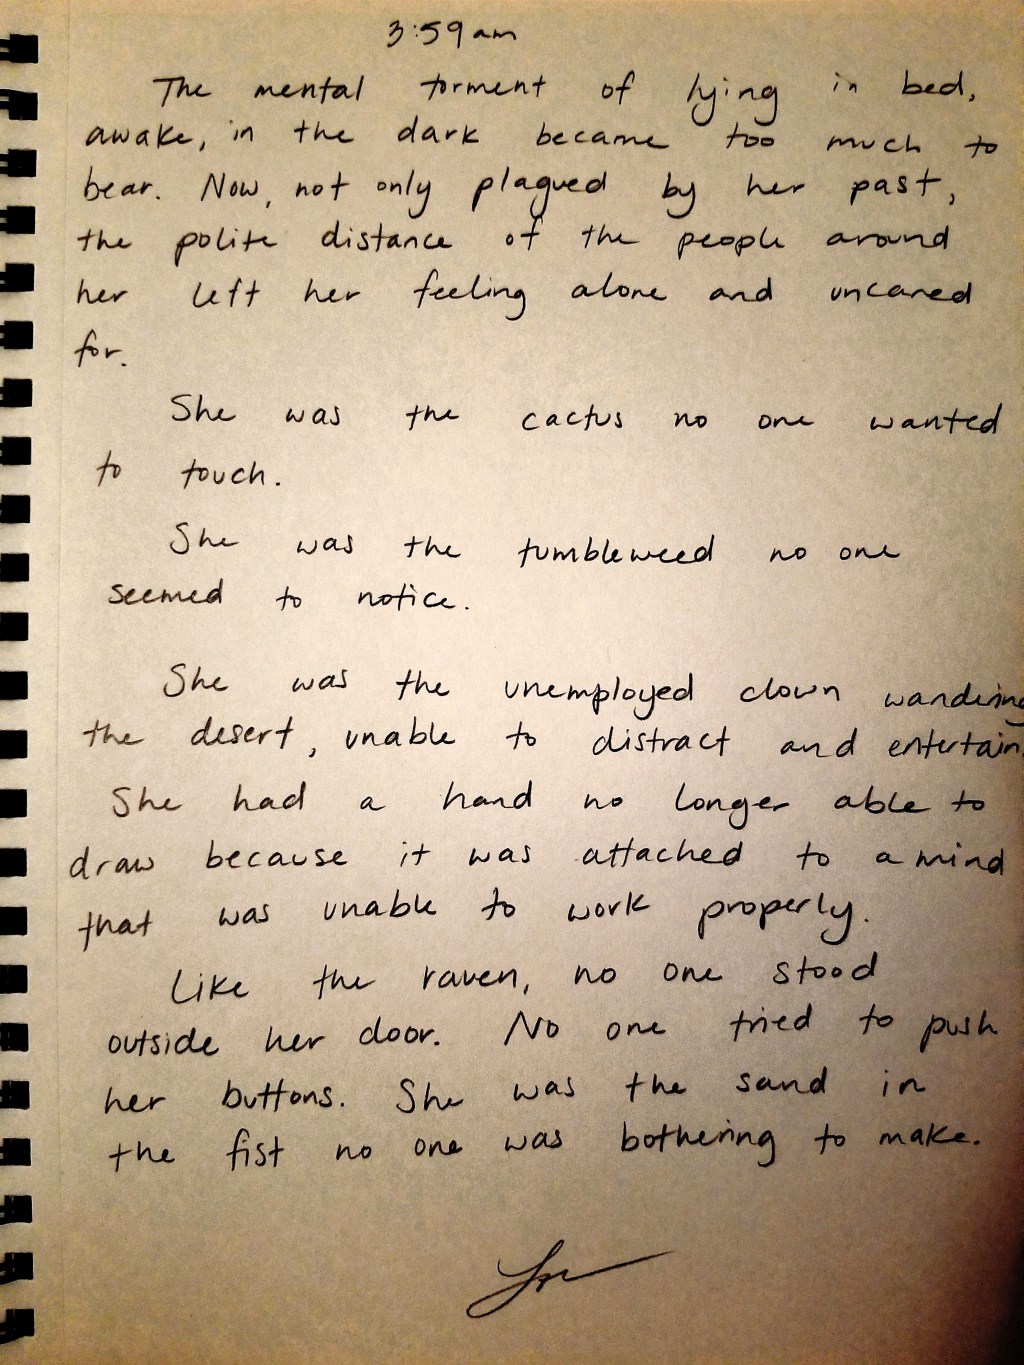 3:59am
The mental torment of lying in bed,
awake, in the dark became too much to
bear. Now, not only plagued by her past,
the polite distance of the people around
her left her feeling alone and uncared
for.
She was the cactus no one wanted
to touch.
She was the tumbleweed no one
seemed to notice.
She was the unemployed clown wandering
the desert, unable to distract and entertain.
She had a hand no longer able to
draw because it was attached to a mind
that was unable to work properly.
Like the raven, no one stood
outside her door. No one tried to push
her buttons. She was the sand in
the fist no one was bothering to make.